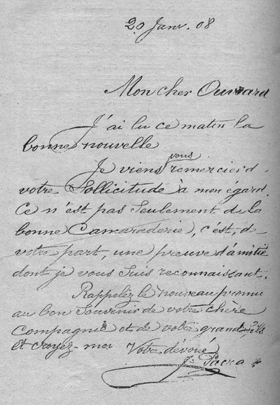 20 Janv. 08
Mon cher Ouvrard
J'ai lu ce matin la
bonne nouvelle
Je viens vous remercier d
votre Sollicitude à mon égard
Ce n'est pas seulement de la
bonne Camaraderie, c'est, d
votre part, une preuve d'amitié
dont je vous suis reconnaissant.
Rappelez le nouveau promu
au bon souvenir de votre chère
Compagne et de votre grande
et croyez moi Votre dévoué